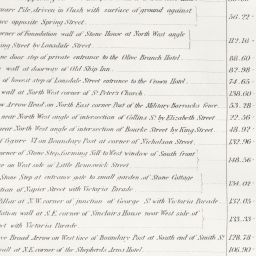 uare Pile, driven in flush with surface of ground against
ace opposite Spring Street 56.22
orner of Foundation wall of Stone House at North West angle
ing Street by Lonsdale Street 112.16
ne door step of private entrance to the Olive Branch Hotel 88.60
wall at doorway of Old Ship Inn 82.98
of lowest step of Lonsdale Street entrance to the Crown Hotel 74.65
wall at North West corner of St Peter's Church 138.00
w Arrow Head on North East corner Post of the Military Barracks fence 53.28
near North West angle of intersection of Collins St by Elizabeth Street 22.56
near North West angle of intersection of Bourke Street by King Street 48.92
t Square on Boundary Post at corner of Nicholson Street 132.96
orner of Stone Step forming Sill to West window of South front
se on West side of Little Brunswick Street 148.56
Stone Step at entrance gate to small garden of Stone Cottage
tion of Napier Street with Victoria Parade 134.02
Pillar at N.W. corner of junction of George St with Victoria Parade 132.05
dation wall at S.E. corner of Sinclair's House near West side of
et with Victoria Parade 133.33
ve Broad Arrow on West face of Boundary Post at South end of South St 128.78
wall at N.E. corner of the Shepherds Arms Hotel 106.90